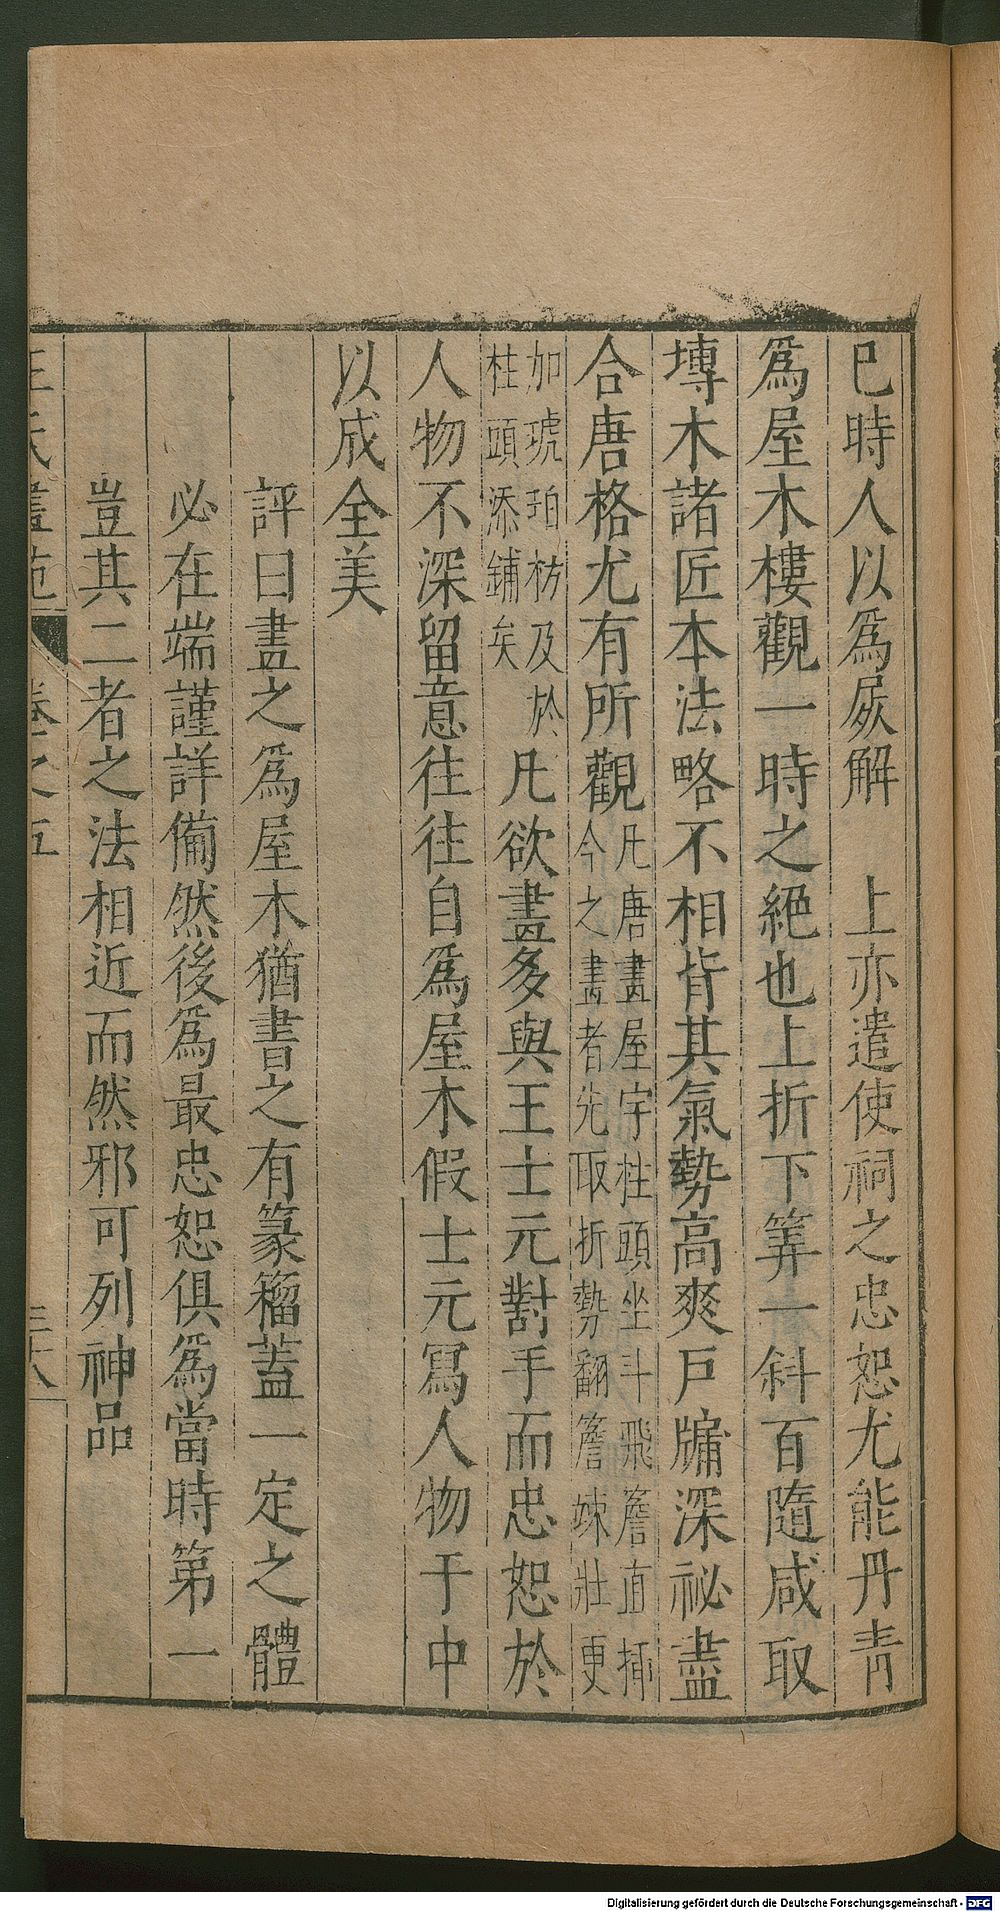 已時人以爲屍解　上亦遣使祠之忠恕尤能丹青
爲屋木樓觀一時之絕也上折下筭一斜百隨咸取
塼木諸匠本法略不相背其氣勢高爽戸牖深祕盡
合唐格尤有所觀凡唐畫屋宇柱頭坐斗飛簷直插
今之畫者先取折勢翻簷竦壯更
加琥珀枋及於
柱頭添鋪矣
凡欲畫多與王士元對手而忠恕於
人物不深留意往往自爲屋木假士元寫人物于中
以成全美
評曰畫之爲屋木猶書之有篆籀蓋一定之體
必在端謹詳備然後爲最忠恕俱爲當時第一
豈其二者之法相近而然邪可列神品
王氏畫苑
卷之五
三十八
Digitalisierung gefördert durch die Deutsche Forschungsgemeinschaft - DFG